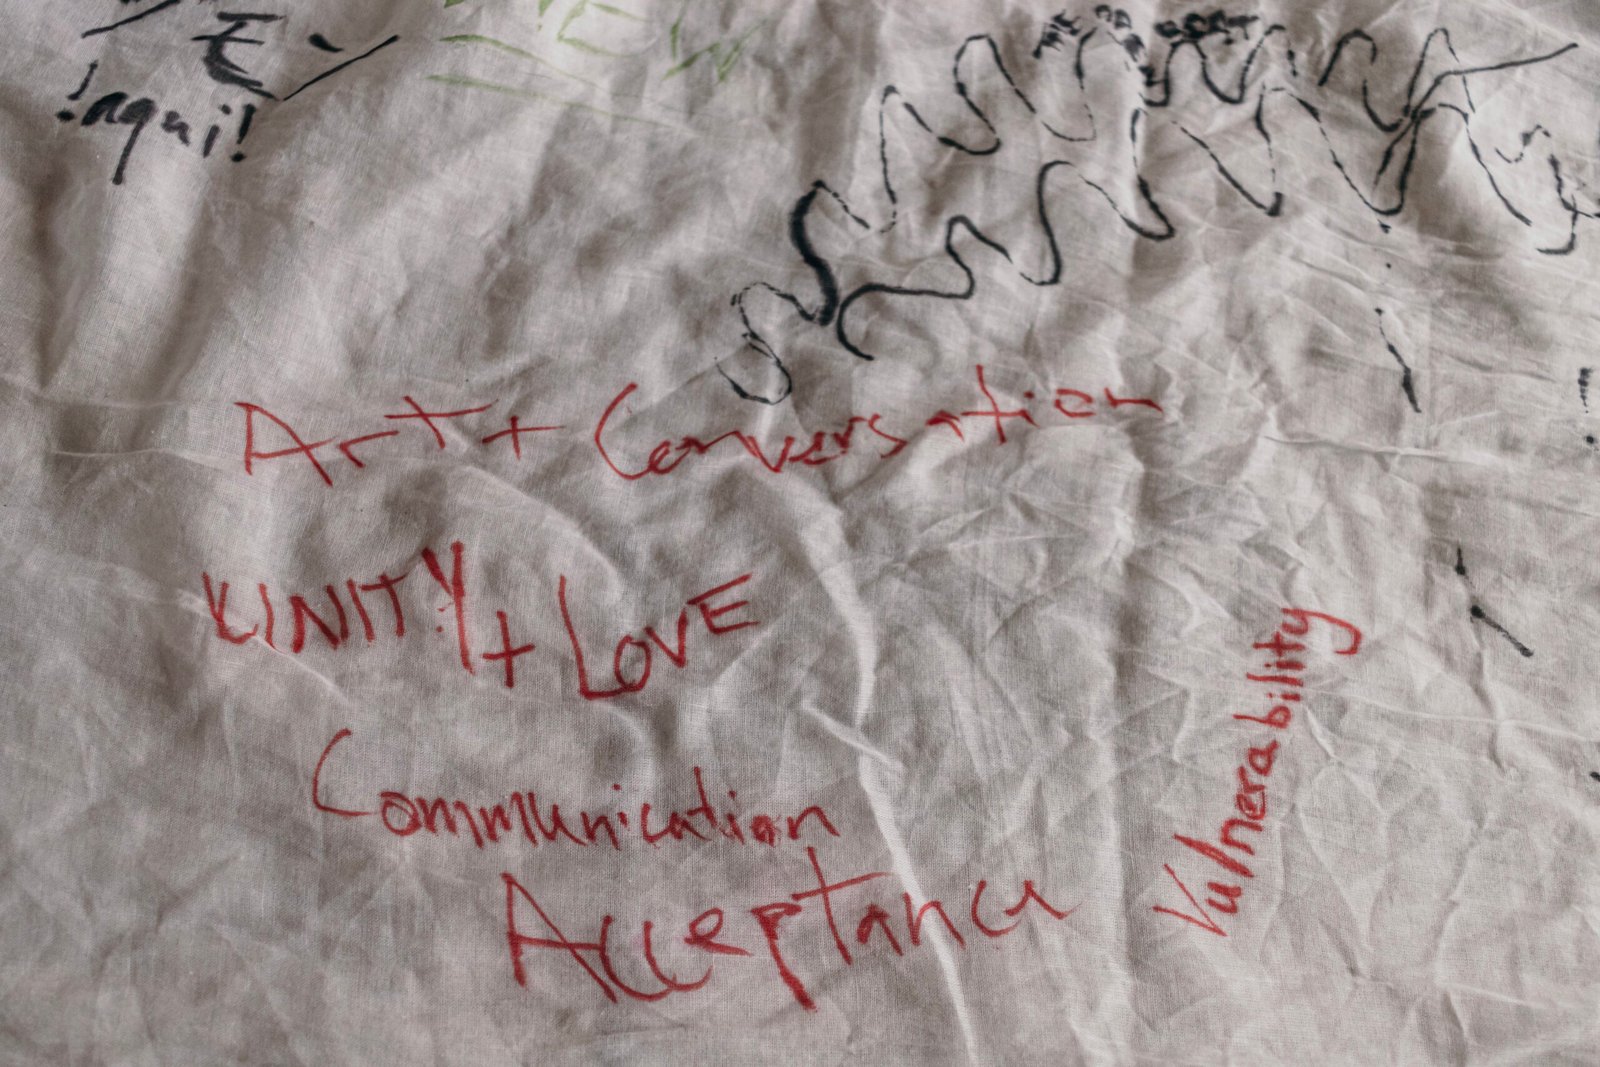 モン
!aqui!
Art + Conversation
UNITY + LOVE
Communication
Acceptance
Vulnerability